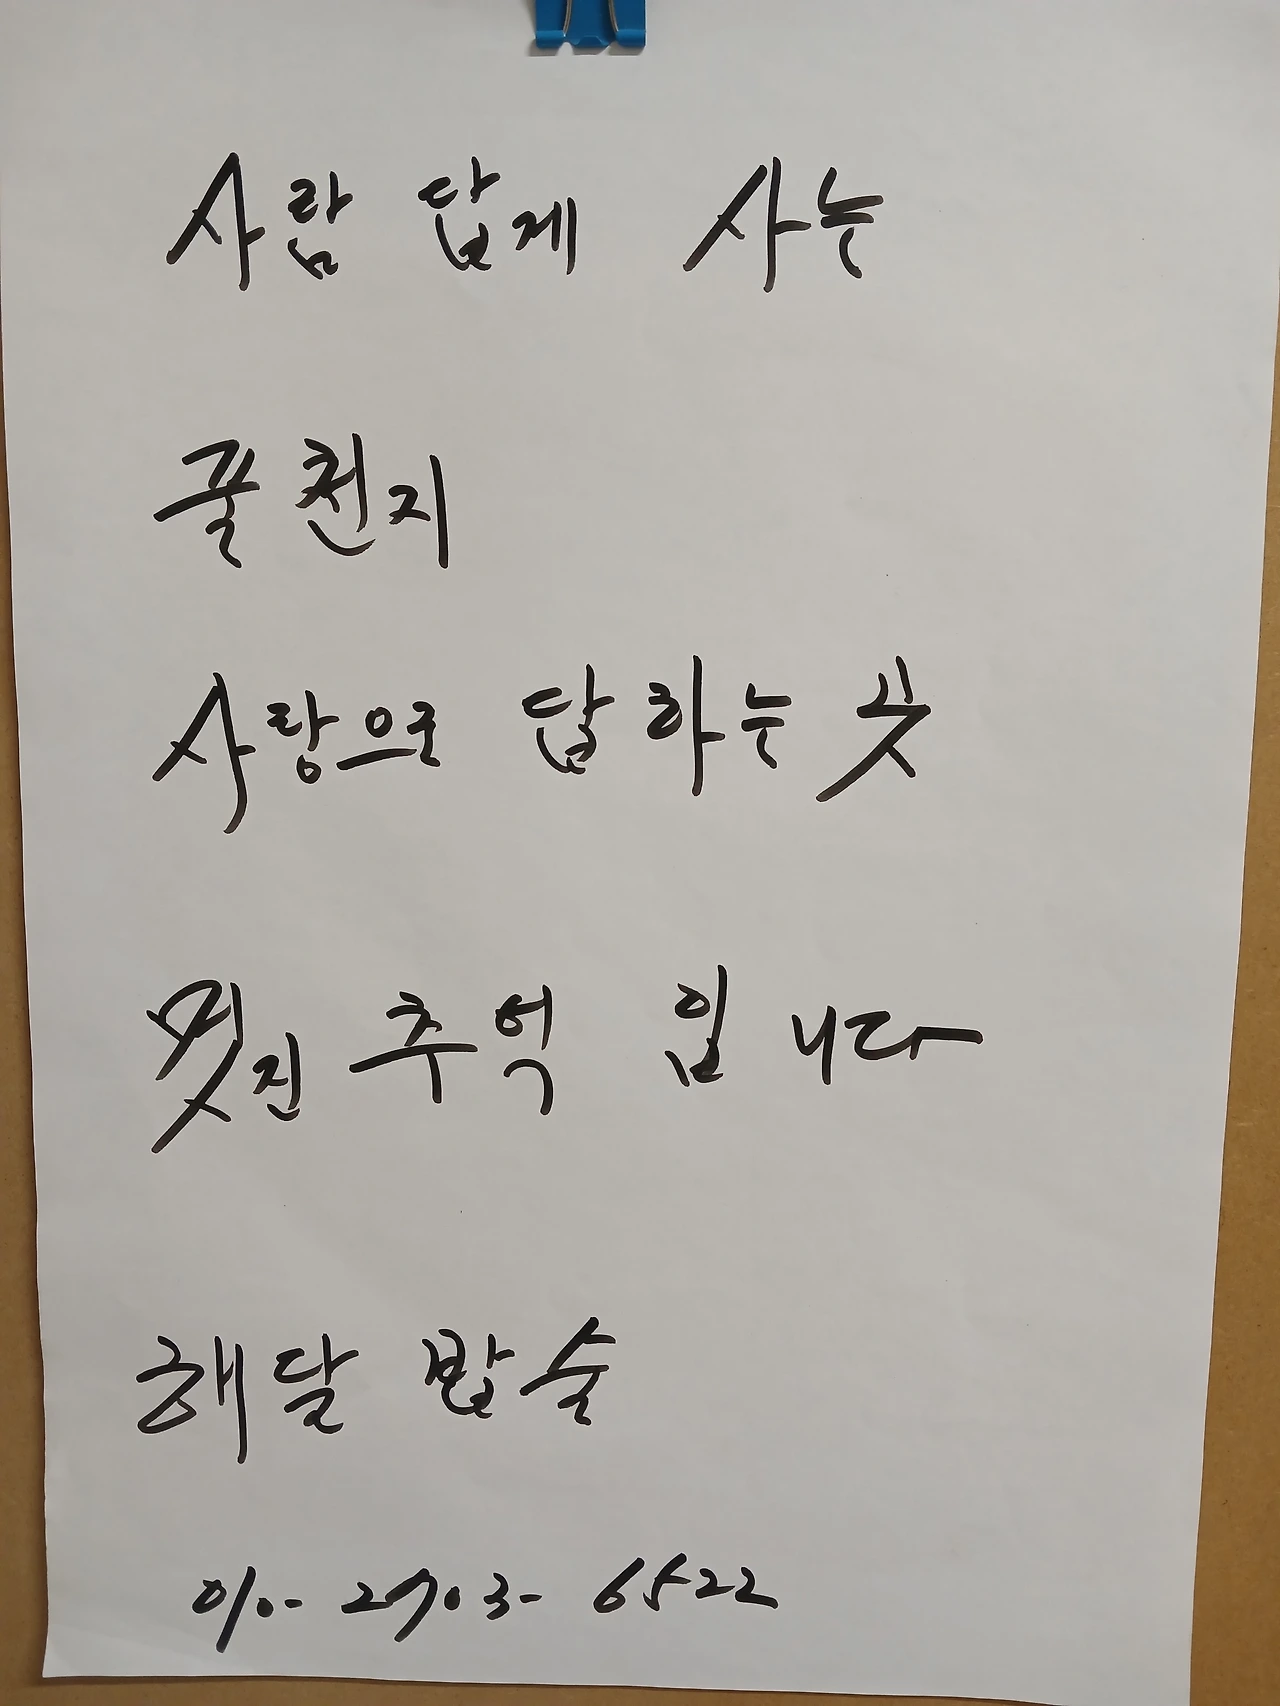 사람 답게 사는
꿀 천지
사랑으로 답하는 곳
멋진 추억 입니다
해달 밥술
010-2903-6522